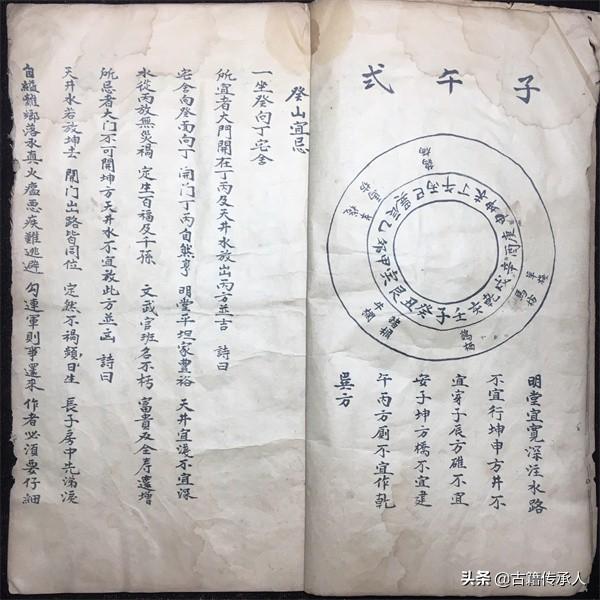 子午式
鷄栖
羊棧
馬坊
牛欄
猪欄
壬子癸丑艮寅甲卯乙辰巽巳丙午丁未坤申庚酉辛戌乾亥
明堂宜寬深注水路
不宜行坤申方井不
宜穿子辰方碓不宜
安子坤方橋不宜建
午丙方廁不宜作乾
巽方
癸山宜忌
一坐癸向丁宅舍
所宜者大門開在丁丙及天井水放出丙方並吉 詩曰
宅舍向癸面向丁 開門丁丙自然亨 明堂平坦家豐裕 天井宜淺不宜深
水從丙放無災禍 定生百福及千孫 文武官班名不朽 富貴双全寿還增
所忌者大门不可開坤方天井水不宜放此方並凶 詩曰
天井水若放坤去 開門出路皆同位 定然不禍頻日生 長子房中先涕淚
自縊離鄉落水真 火瘟惡疾難逃避 勾連軍則事還來 作者必須要仔細
头条 @古籍传承人